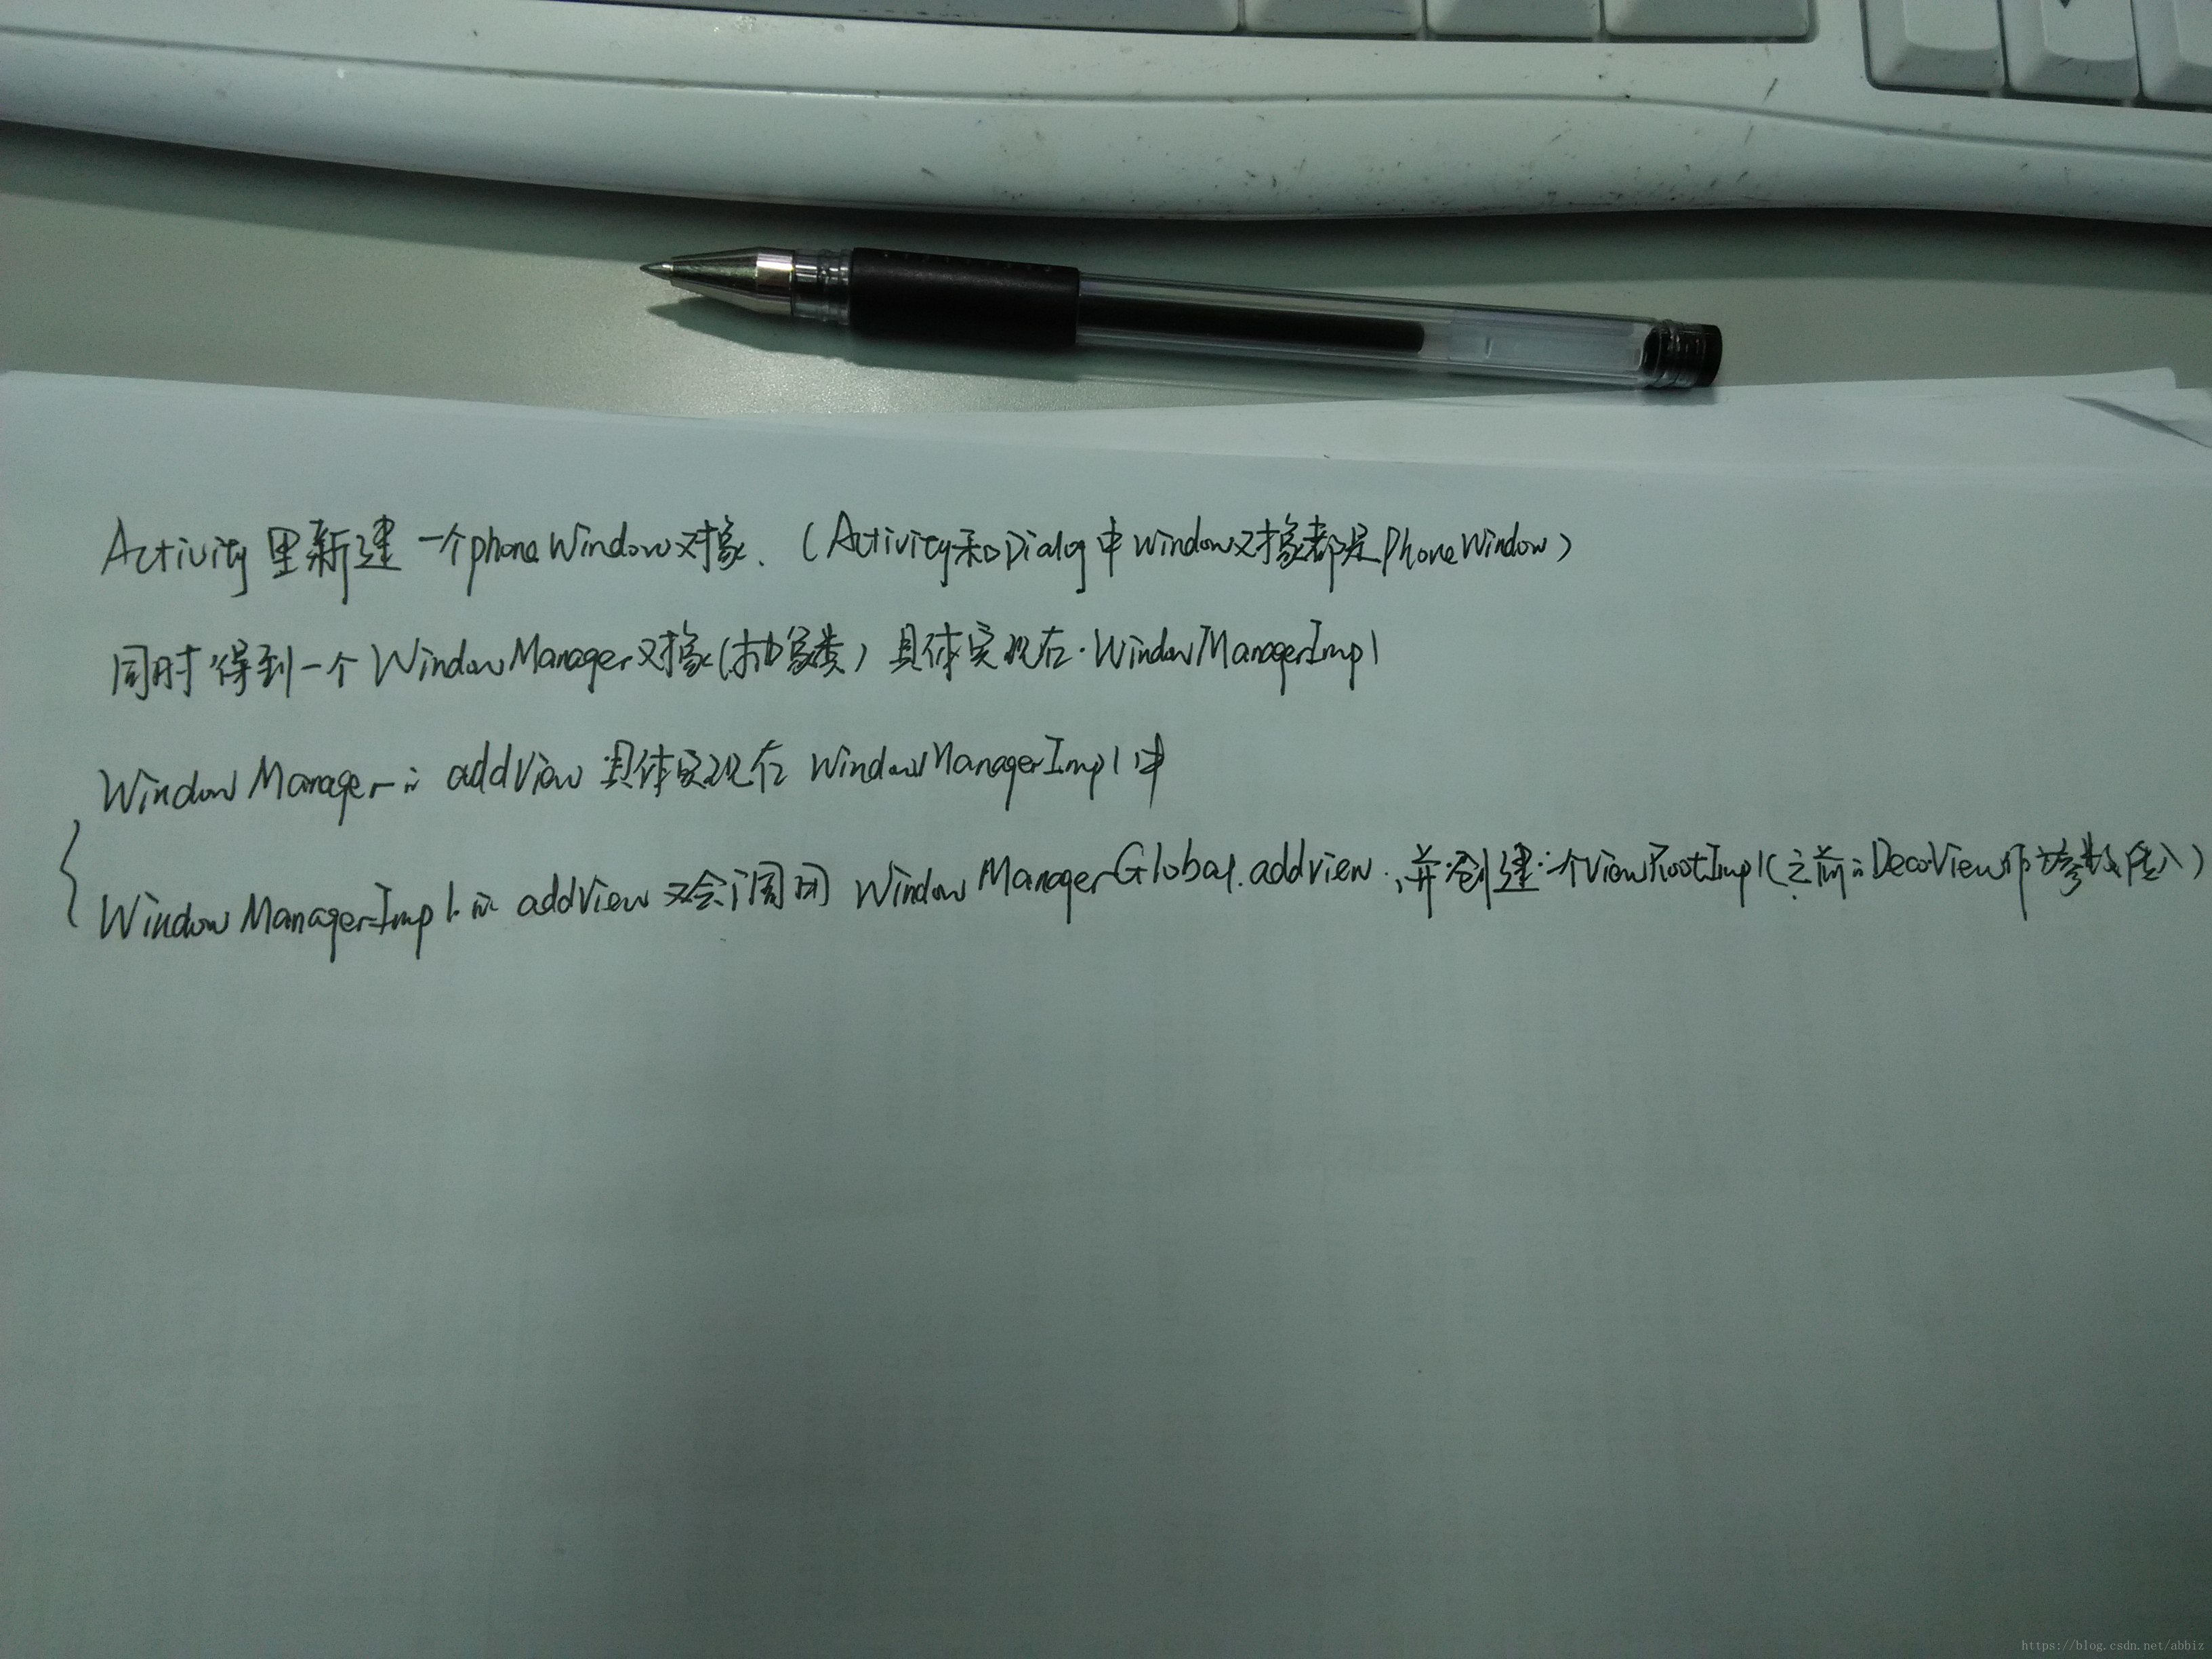 Activity里新建一个phoneWindow对象.（Activity和Dialog中window对象都是PhoneWindow）
同时得到一个WindowManager对象(抽象类）具体实现在.WindowManagerImpl
WindowManager的addView具体实现在WindowManagerImpl中
WindowManagerImpl的addView又会调用WindowManagerGlobal.addview.,并创建一个ViewRootImpl(之前的DecorView作参数传入)
https://blog.csdn.net/abbiz